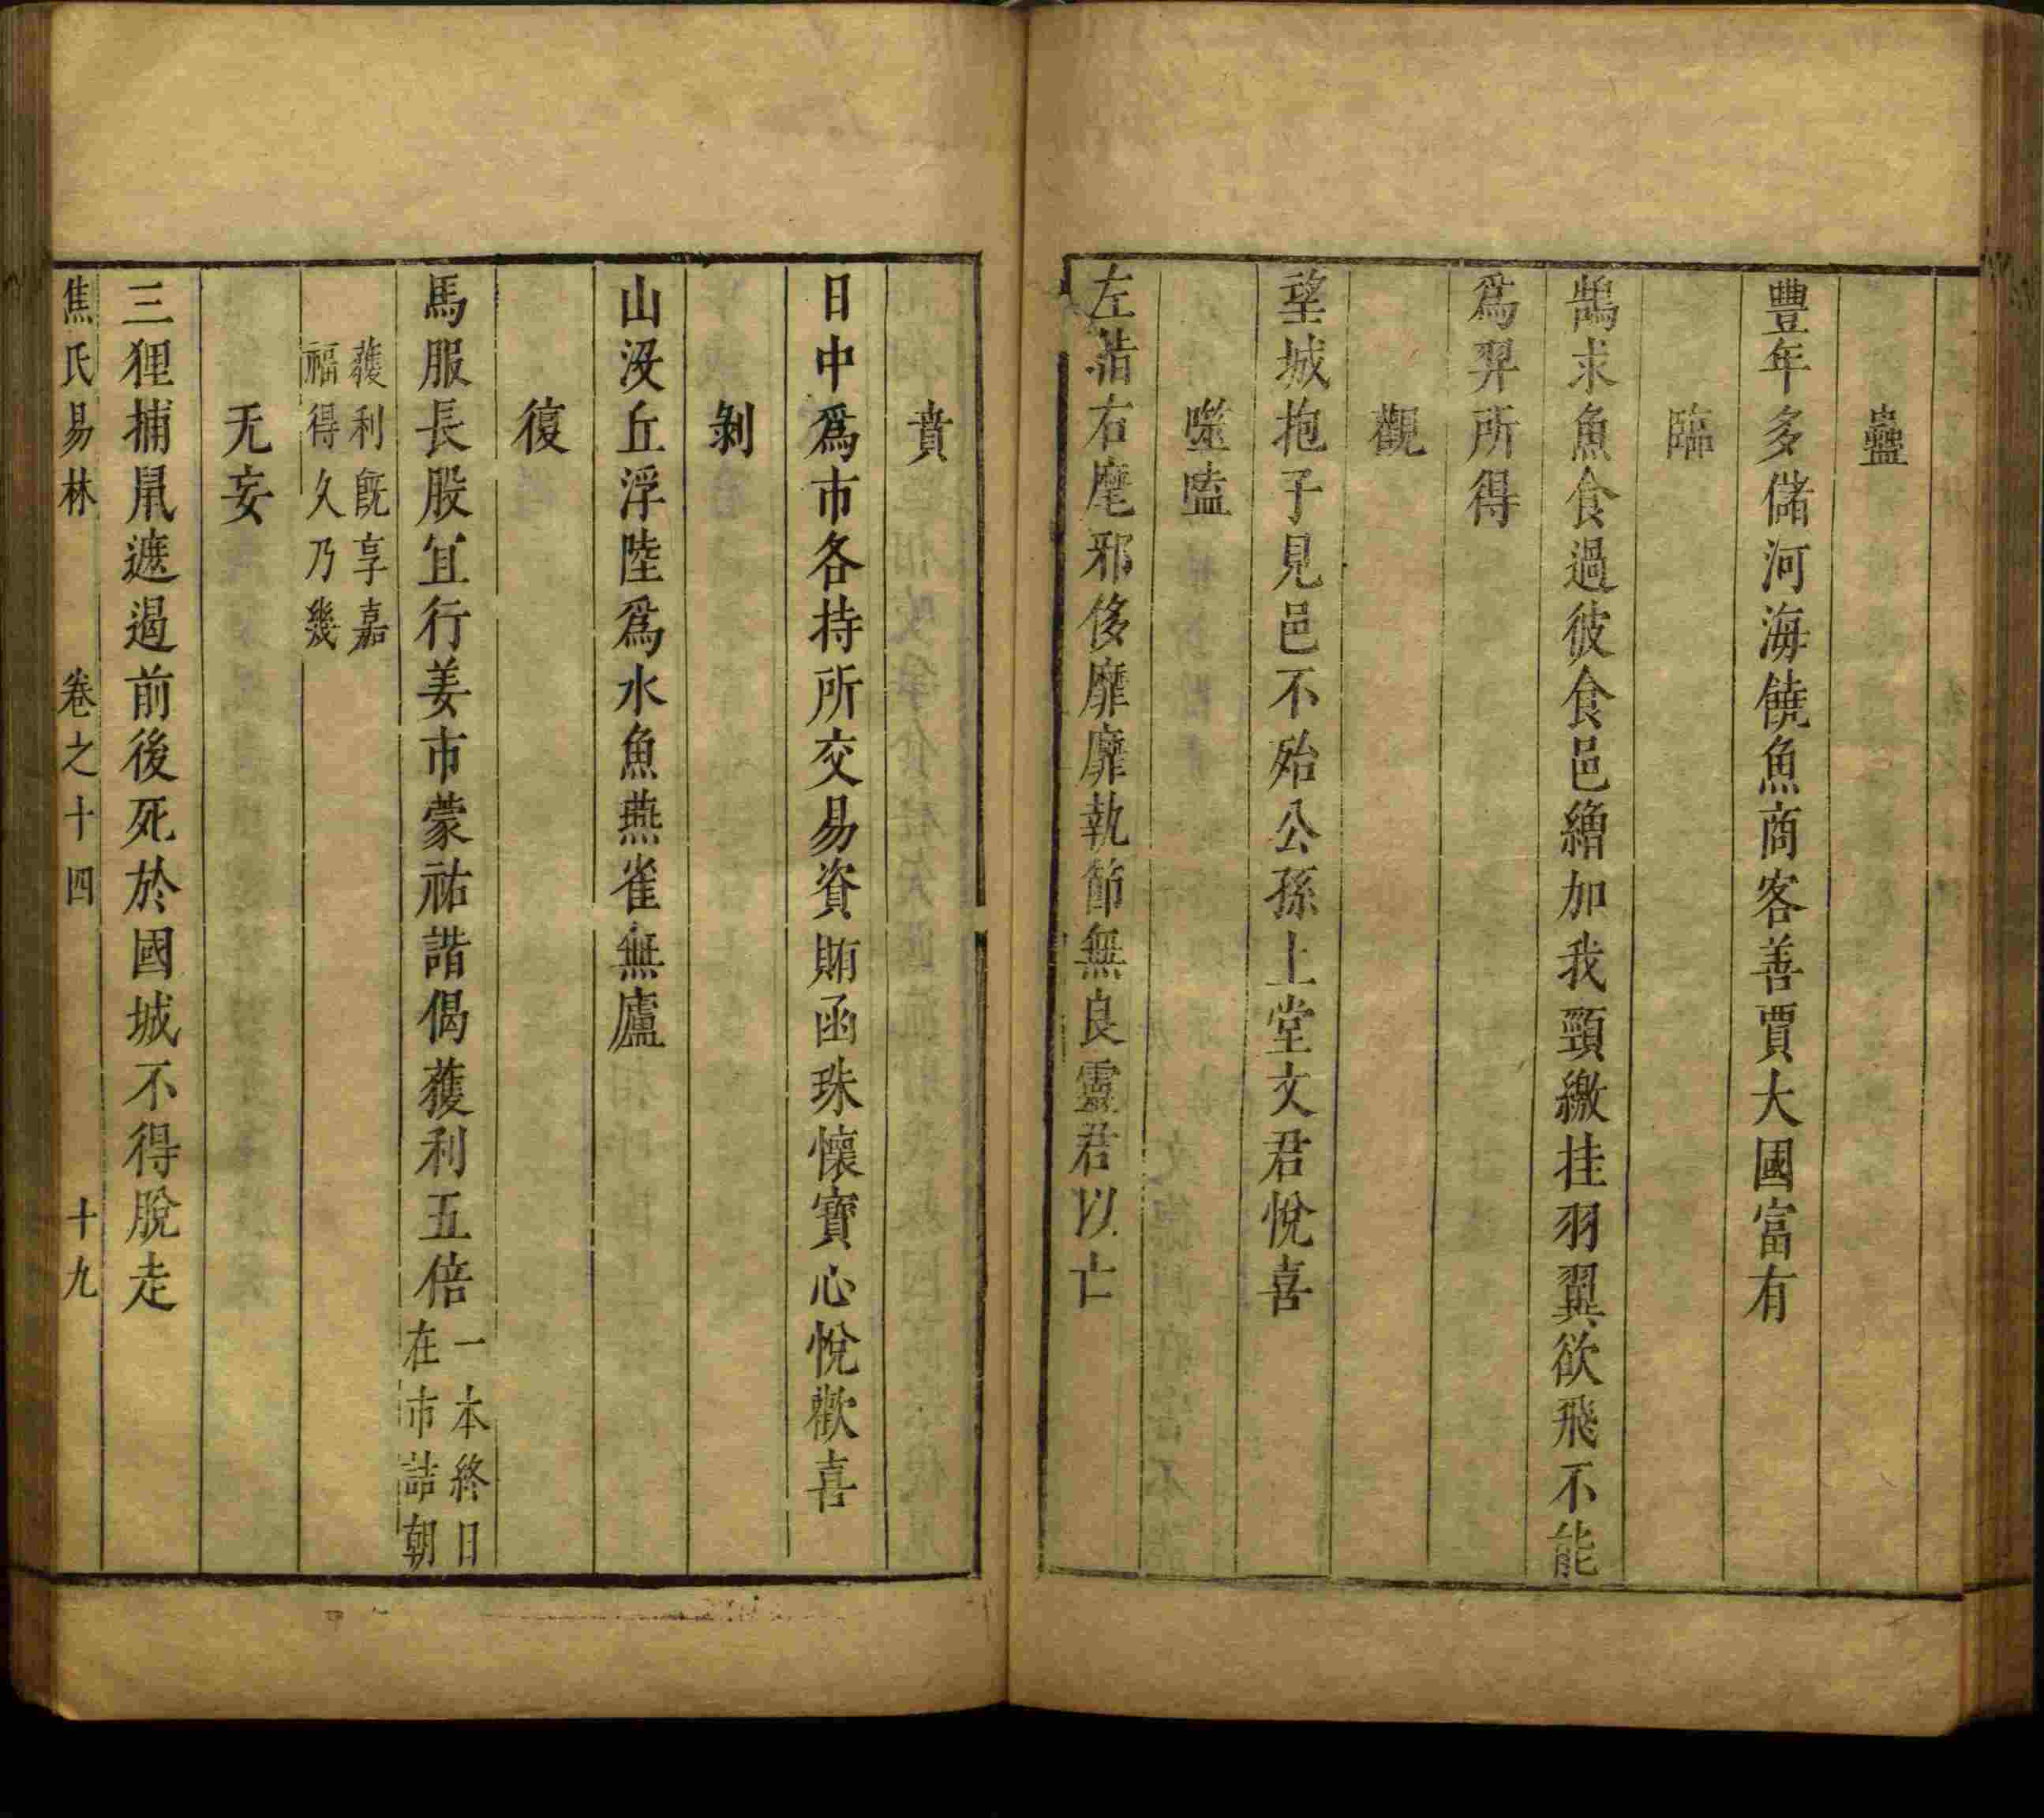 蠱
豐年多儲河海饒魚商客善賈大國富有
臨
鵠求魚食過彼食邑繒加我頸繳挂羽翼欲飛不能
爲羿所得
觀
望城抱子見邑不殆公孫上堂文君悅喜
噬嗑
左指右麾邪侈靡靡執節無良靈君以亡
賁
日中爲市各持所交易資賄函珠懷寶心悅歡喜
剝
山沒丘浮陸爲水魚燕雀無廬
復
馬服長股宜行善市蒙祐諧偶獲利五倍
一本終日
在市詰朝
獲利旣享嘉
福得久乃幾
无妄
三狸捕鼠遮遏前後死於國城不得脫走
焦氏易林 卷之十四 十九